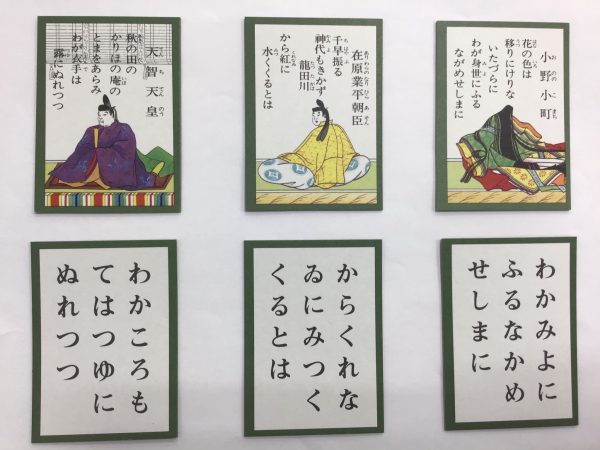 天智天皇
秋の田の
かりほの庵の
とまをあらみ
わが衣手は
露にぬれつつ
在原業平朝臣
千早振る
神代もきかず
龍田川
から紅に
水くくるとは
小野小町
花の色は
移りにけりな
いたづらに
わが身世にふる
ながめせしまに
わかころも
てはつゆに
ぬれつつ
からくれな
ゐにみつく
くるとは
わかみよに
ふるなかめ
せしまに